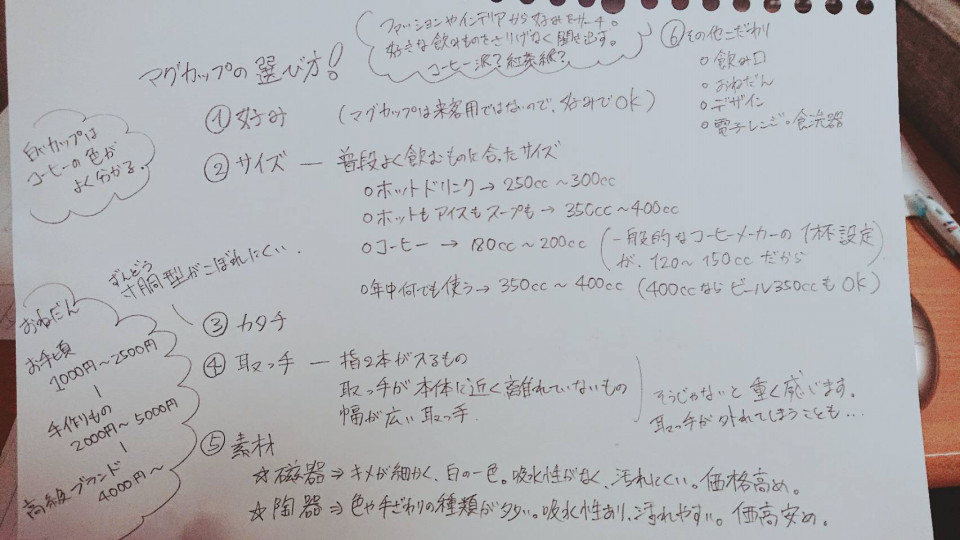 マグカップの選び方!
ファッションやインテリアから好みをサーチ。
好きな飲みものをさりげなく聞き出す。
コーヒー派?紅茶派?
⑥その他こだわり
○飲み口
○おねだん
○デザイン
○電子レンジ・食洗器
①好み (マグカップは来客用ではないので、好みでOK)
白いカップは
コーヒーの色が
よく分かる。
②サイズ ― 普段よく飲むものに合ったサイズ
○ホットドリンク→250cc～300cc
○ホットもアイスもスープも→350cc～400cc
○コーヒー→180cc～200cc (一般的なコーヒーメーカーの1杯設定
が、120～150ccだから)
○年中何でも使う→350cc～400cc (400ccならビール350ccもOK)
ずんどう
寸胴型がこぼれにくい.
③カタチ
④取っ手 ― 指2本が入るもの
取っ手が本体に近く離れていないもの
幅が広い取っ手.
そうじゃないと重く感じます。
取っ手が外れてしまうことも…
おねだん
お手頃
1000円～2500円
|
手作りもの
2000円～5000円
|
高級ブランド
4000円～
⑤素材
☆磁器⇒キメが細かく、白の一色。吸水性がなく、汚れにくい。価格高め。
☆陶器⇒色や手ざわりの種類が多い。吸水性あり、汚れやすい。価高安め。